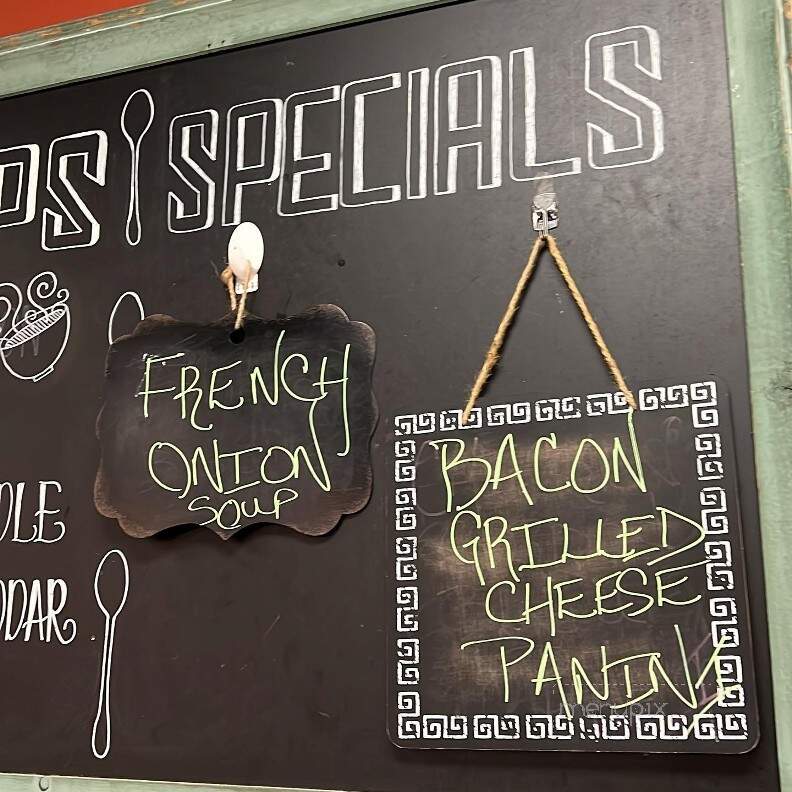 PS SPECIALS
FRENCH
ONION
SOUP
BACON
GRILLED
CHEESE
PANINI
DLE
DDAR
menupix